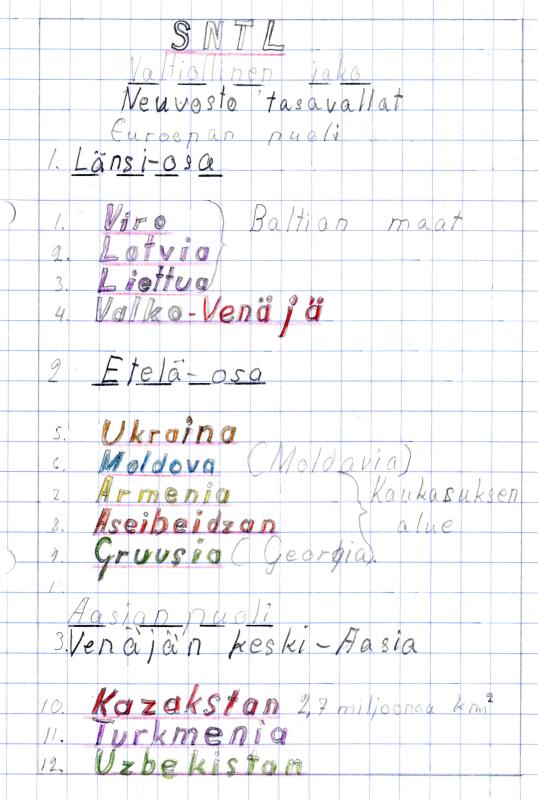 SNTL
Valtiollinen jako
Neuvosto tasavallat
Euroopan puoli
1. Länsi-osa
1. Viro
2. Latvia
3. Liettua
Baltian maat
4. Valko-Venäjä
2 Etelä-osa
5. Ukraina
6. Moldova (Moldavia)
7. Armenia
8. Aseibeidzan
9. Gruusia (Georgia)
Kaukasuksen
alue
Aasian puoli
3. Venäjän keski-Aasia
10. Kazakstan 2,7 miljoonaa km²
11. Turkmenia
12. Uzbekistan